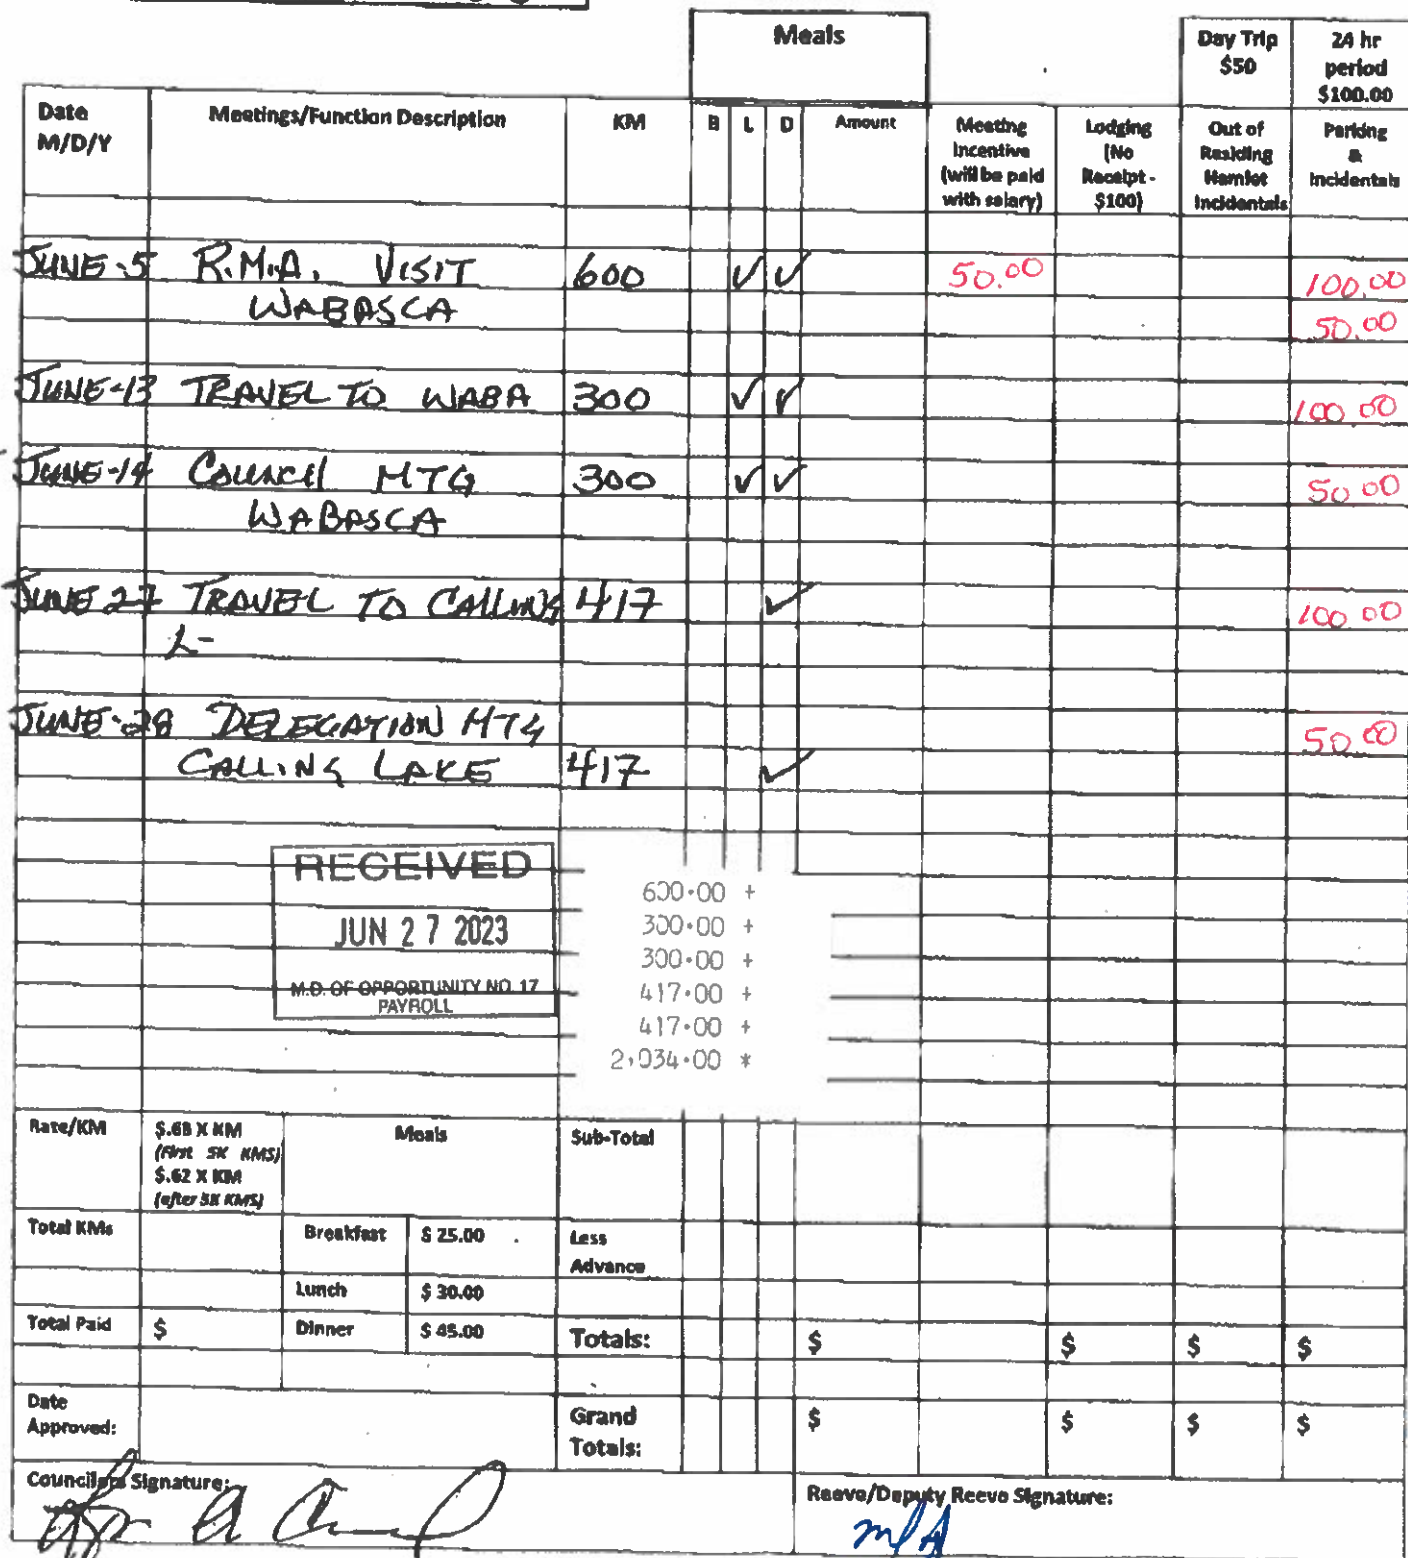 Meals
Day Trip $50
24 hr period $100.00
Date M/D/Y
Meetings/Function Description
KM
B L D Amount
Meeting Incentive (will be paid with salary)
Lodging (No Receipt - $100)
Out of Residing Hamlet Incidentals
Parking & Incidentals
JUNE-5 R.M.A. VISIT 600 ✓ ✓ 50.00 100.00
WABASCA 50.00
JUNE-13 TRAVEL TO WABA 300 ✓ ✓ 100.00
JUNE-14 COUNCIL MTG 300 ✓ ✓ 50.00
WABASCA
JUNE 27 TRAVEL TO CALLING 417 ✓ 100.00
L-
JUNE-28 DELEGATION MTG 50.00
CALLING LAKE 417 ✓
RECEIVED
JUN 27 2023
M.D. OF OPPORTUNITY NO. 17
PAYROLL
600.00 +
300.00 +
300.00 +
417.00 +
417.00 +
2,034.00 *
Rate/KM
$.68 X KM
(First 5K KMS)
$.62 X KM
(after 5K KMS)
Meals
Sub-Total
Total KMs
Breakfast $ 25.00
Less Advance
Lunch $ 30.00
Total Paid $
Dinner $ 45.00
Totals: $ $ $ $
Date Approved:
Grand Totals: $ $ $ $
Councilors Signature:
Reeve/Deputy Reeve Signature: